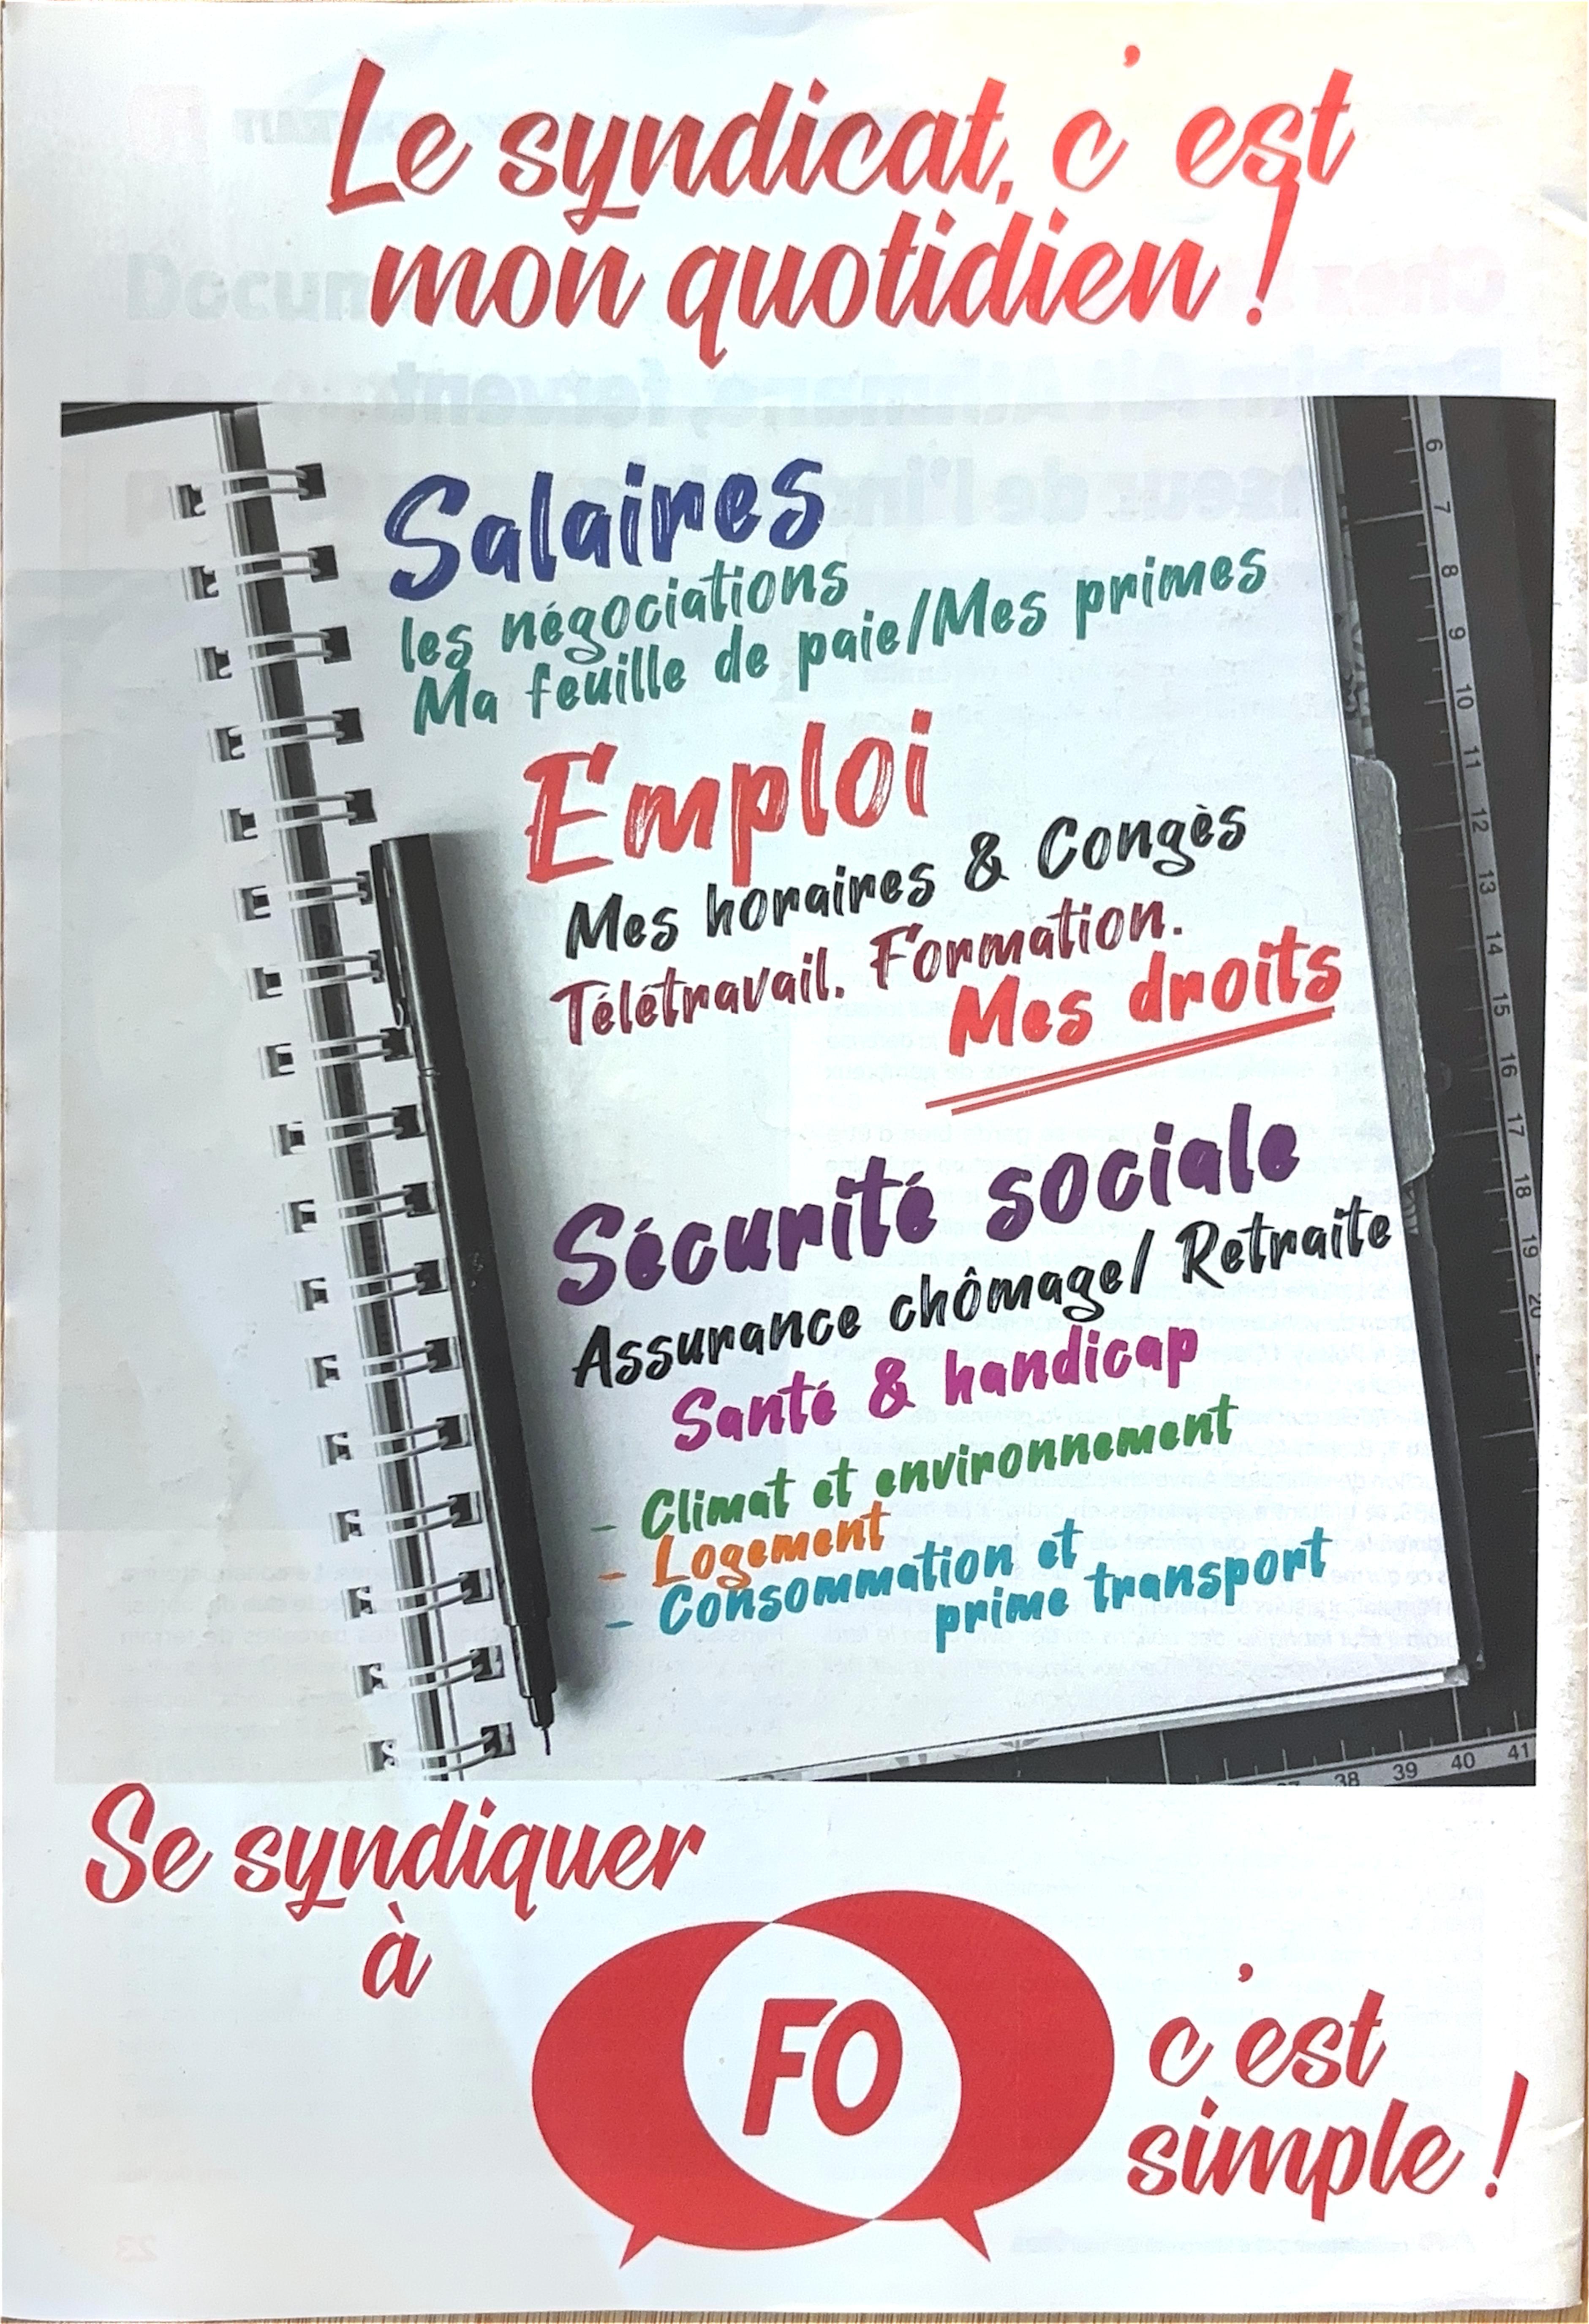 Le syndicat, c'est
mon quotidien !
Salaires
les négociations
Ma feuille de paie/Mes primes
Emploi
Mes horaires & Congès
Télétravail. Formation.
Mes droits
Sécurité sociale
Assurance chômage/ Retraite
Santé & handicap
- Climat et environnement
- Logement
- Consommation et
prime transport
6
7
8
9
10
11
12
13
14
15
16
17
18
19
20
38
39
40
41
Se syndiquer
à
FO
c'est
simple !
23